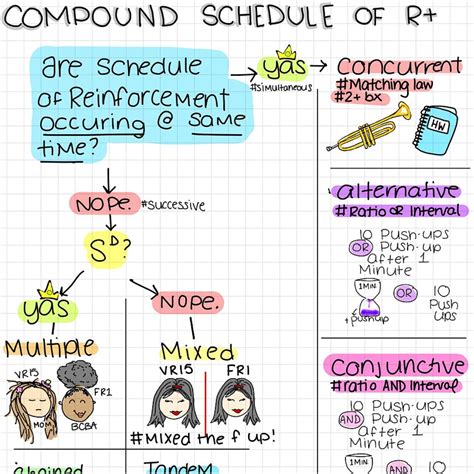 COMPOUND SCHEDULE OF R+
are schedule
of Reinforcement
occuring @ same
time?
yas
#simultaneous
Concurrent
#Matching law
#2+ bx
HW
NOPE.
#successive
alternative
#Ratio OR Interval
10 Push-ups
OR Push-up
After 1
Minute
1MIN.
+pushup
OR
10
Push
Ups
SD?
yas
NOPE.
Multiple
VR15
FR1
MOM
BCBA
Mixed
VR15
FR1
#Mixed the f up!
Conjunctive
#ratio AND Interval
10 Push-ups
AND Push-up
after 1
Minute
1MIN
AND
10
chained
Tandem